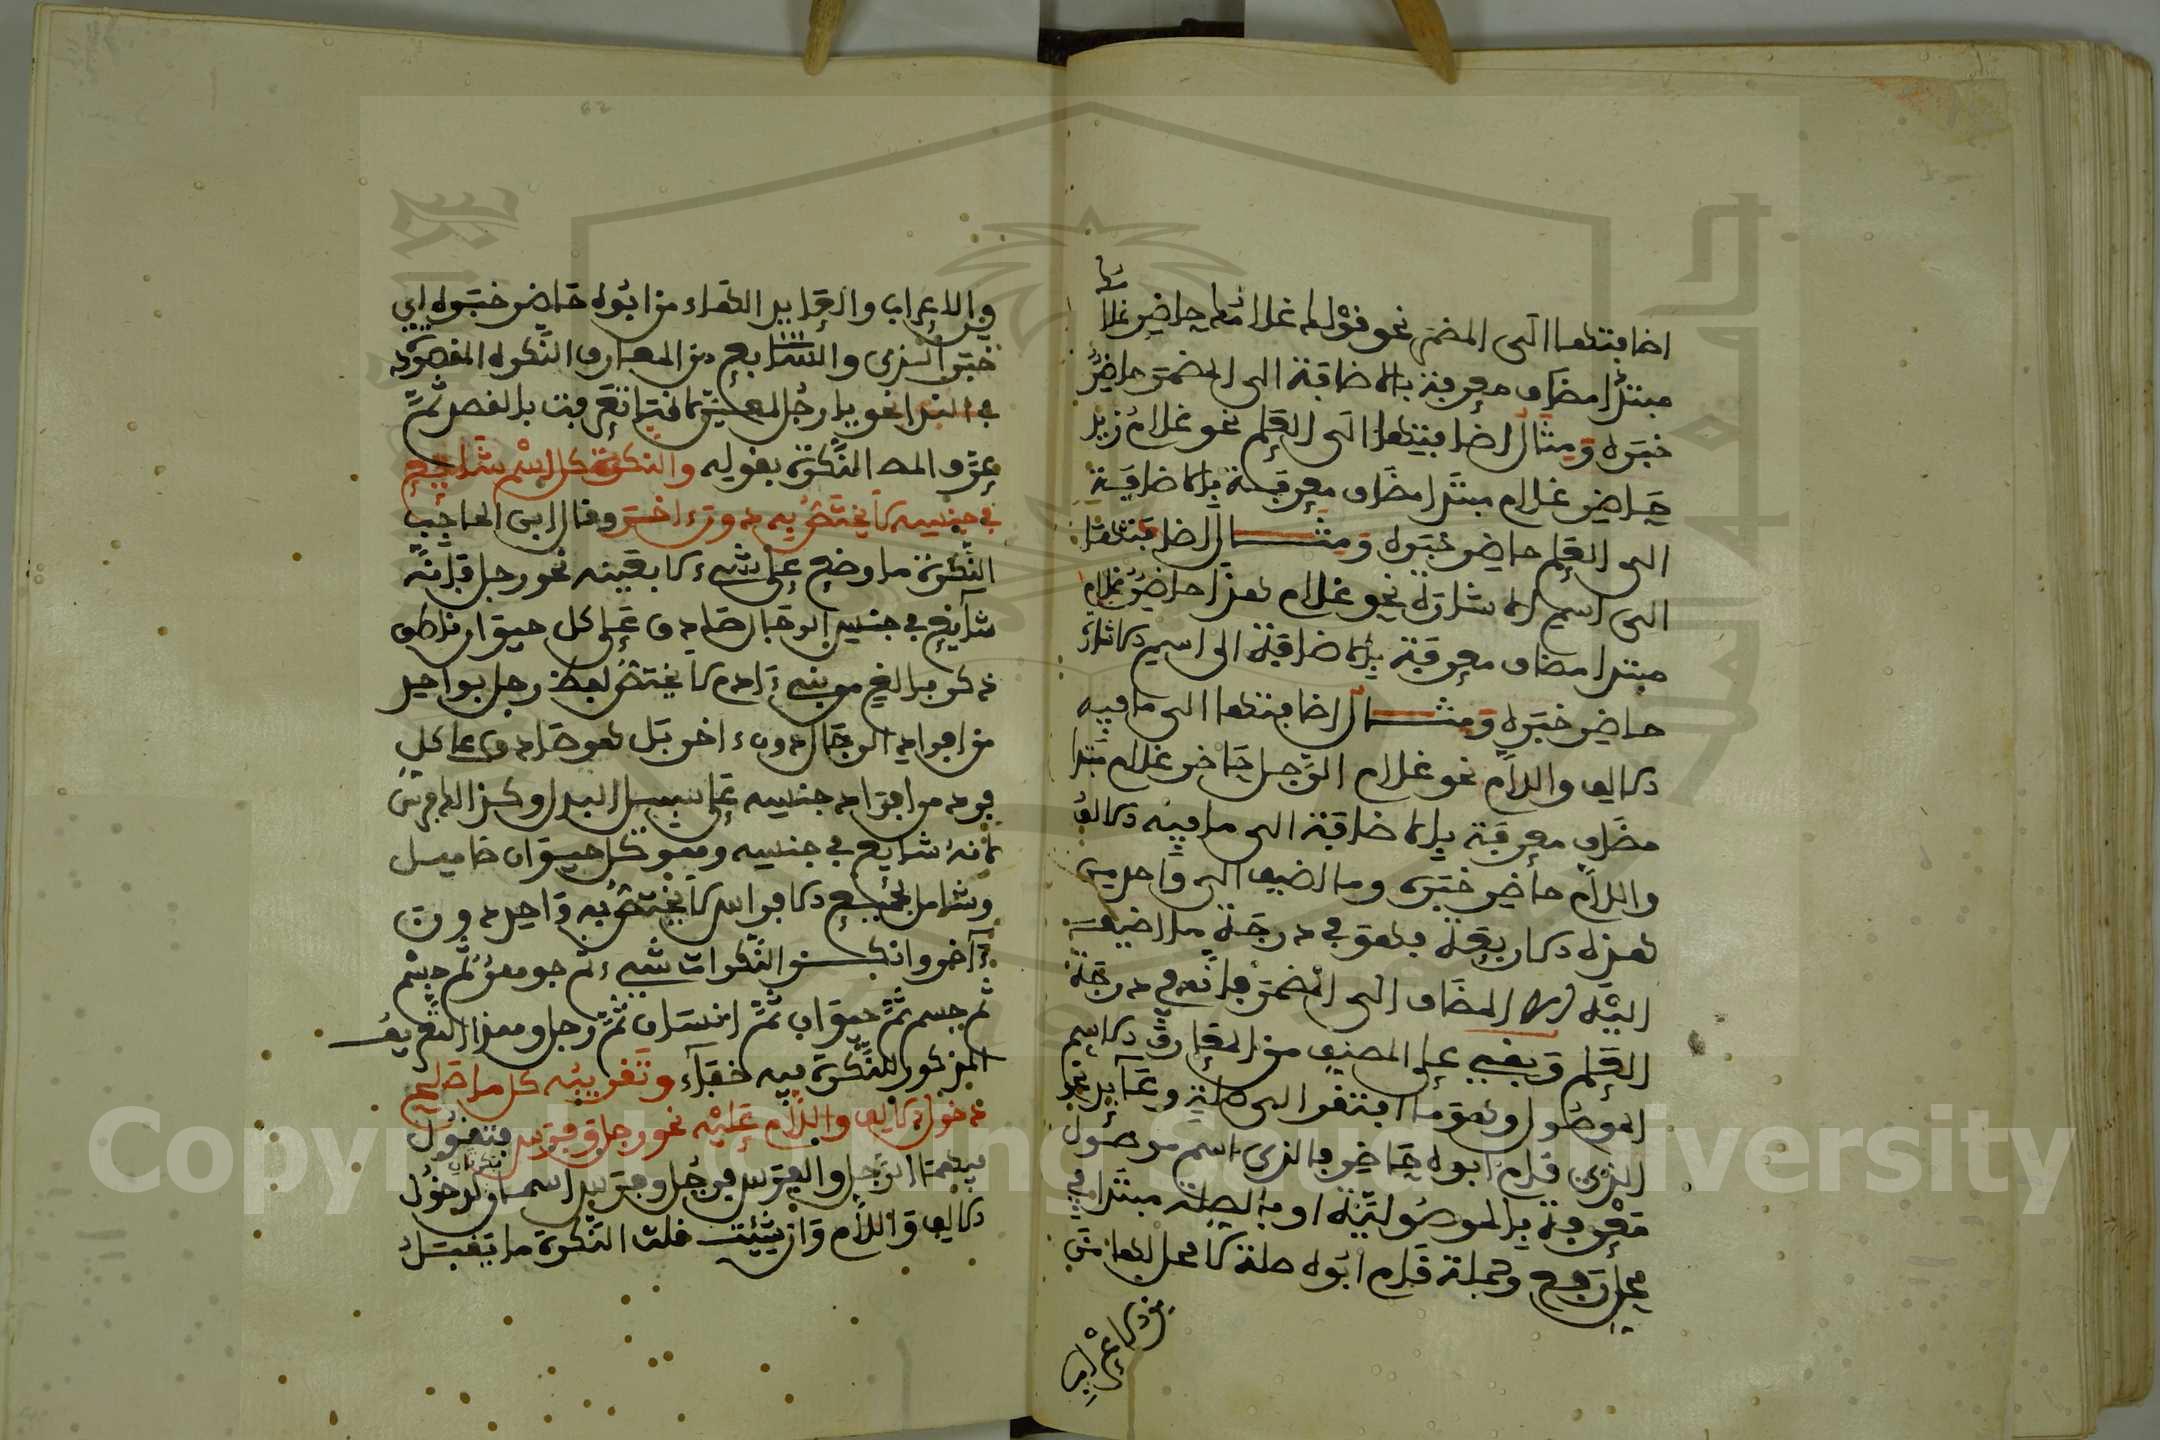 اضافتها الى المضمر نحو قولك غلامك حاضر غلام
مبتدأ مضاف معرفة بالاضافة الى المضمر حاضر
خبره ومثال اضافتها الى العلم نحو غلام زيد
حاضر غلام مبتدا مضاف معرفة بالاضافة
الى العلم حاضر خبره ومثال اضافتها
الى اسم الاشارة نحو غلام هذا حاضر غلام
مبتدا مضاف معرفة بالاضافة الى اسم الاشارة
حاضر خبره ومثال اضافتها الى ما فيه
الالف واللام نحو غلام الرجل حاضر غلام مبتدا
مضاف معرفة بالاضافة الى ما فيه الالف
واللام حاضر خبره وما اضيف الى واحد من
هذه الاربعة فهو في درجة ما اضيف
اليه الا المضاف الى المضمر فانه في درجة
العلم وبقي على المصنف من المعارف الاسم
الموصول وهو ما افتقر الى صلة وعائد نحو
الذي قام ابوه حاضر فالذي اسم موصول
معرفة بالموصولية او بالصلة مبتدا في
محل رفع وجملة قام ابوه صلة لا محل لها من
من الاعراب
والاعراب والعايد الهاء من ابوه حاضر خبره اي
خبر الذي والسابع من المعارف النكرة المقصودة
في الندا نحو يا رجل لمعين لانها تعرفت بالقصد ثم
عرف المص النكرة بقوله والنكرة كل اسم شايع
في جنسه لا يختص به دون اخر وقال ابن الحاجب
النكرة ما وضع على شيء لا بعينه نحو رجل فانه
شايع في جنس الرجال صادق على كل حيوان ناطق
ذكر بالغ من بني ءادم لا يختص لفظ رجل بواحد
من افراد الرجال دون ءاخر بل هو صادق على كل
فرد من افراد جنسه على سبيل البدل وكذا الفرس
لانه شايع في جنسه وهو كل حيوان صاهل
وشامل لجميع الافراس لا يختص به واحد دون
ءاخر وانكر النكرات شيء ثم جوهر ثم جسم
ثم جسم ثم حيوان ثم انسان ثم رجل وهذا التعريف
المذكور للنكرة فيه خفاء وتقريبه كل ما صلح
دخول الالف واللام عليه نحو رجل وفرس فتقول
فيهما الرجل والفرس فرجل وفرس اسمان نكرتان لدخول
الالف واللام وان شئت قلت النكرة ما يقبل